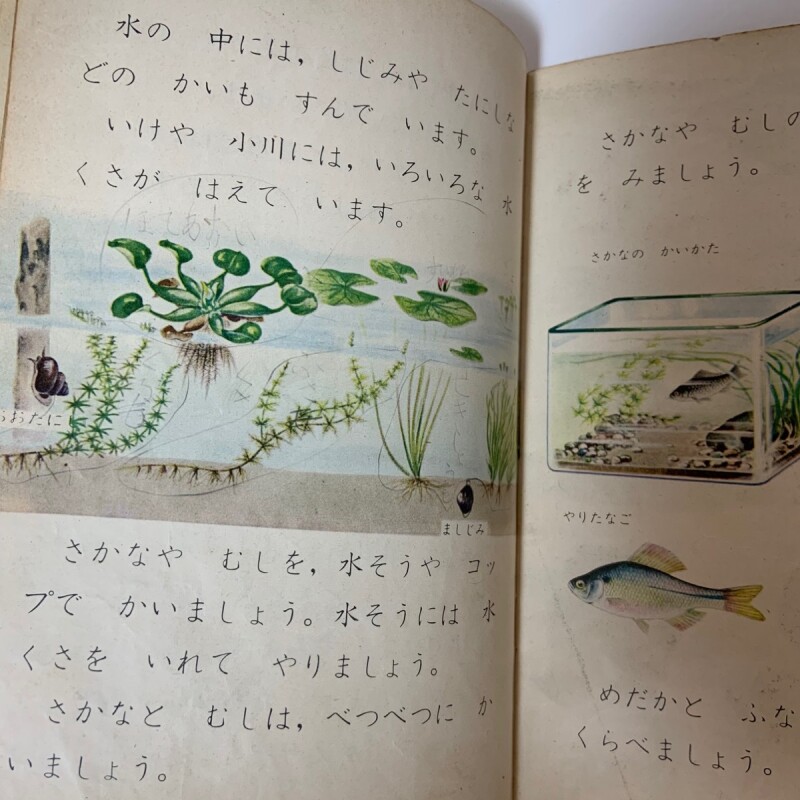 水の 中には，しじみや たにしな
どの かいも すんで います。
いけや 小川には，いろいろな 水
くさが はえて います。
おおたに
ましじみ
さかなや むしを，水そうや コッ
プで かいましょう。水そうには 水
くさを いれて やりましょう。
さかなと むしは，べつべつに か
いましょう。
さかなや むしの
を みましょう。
さかなの かいかた
やりたなご
めだかと ふな
くらべましょう。